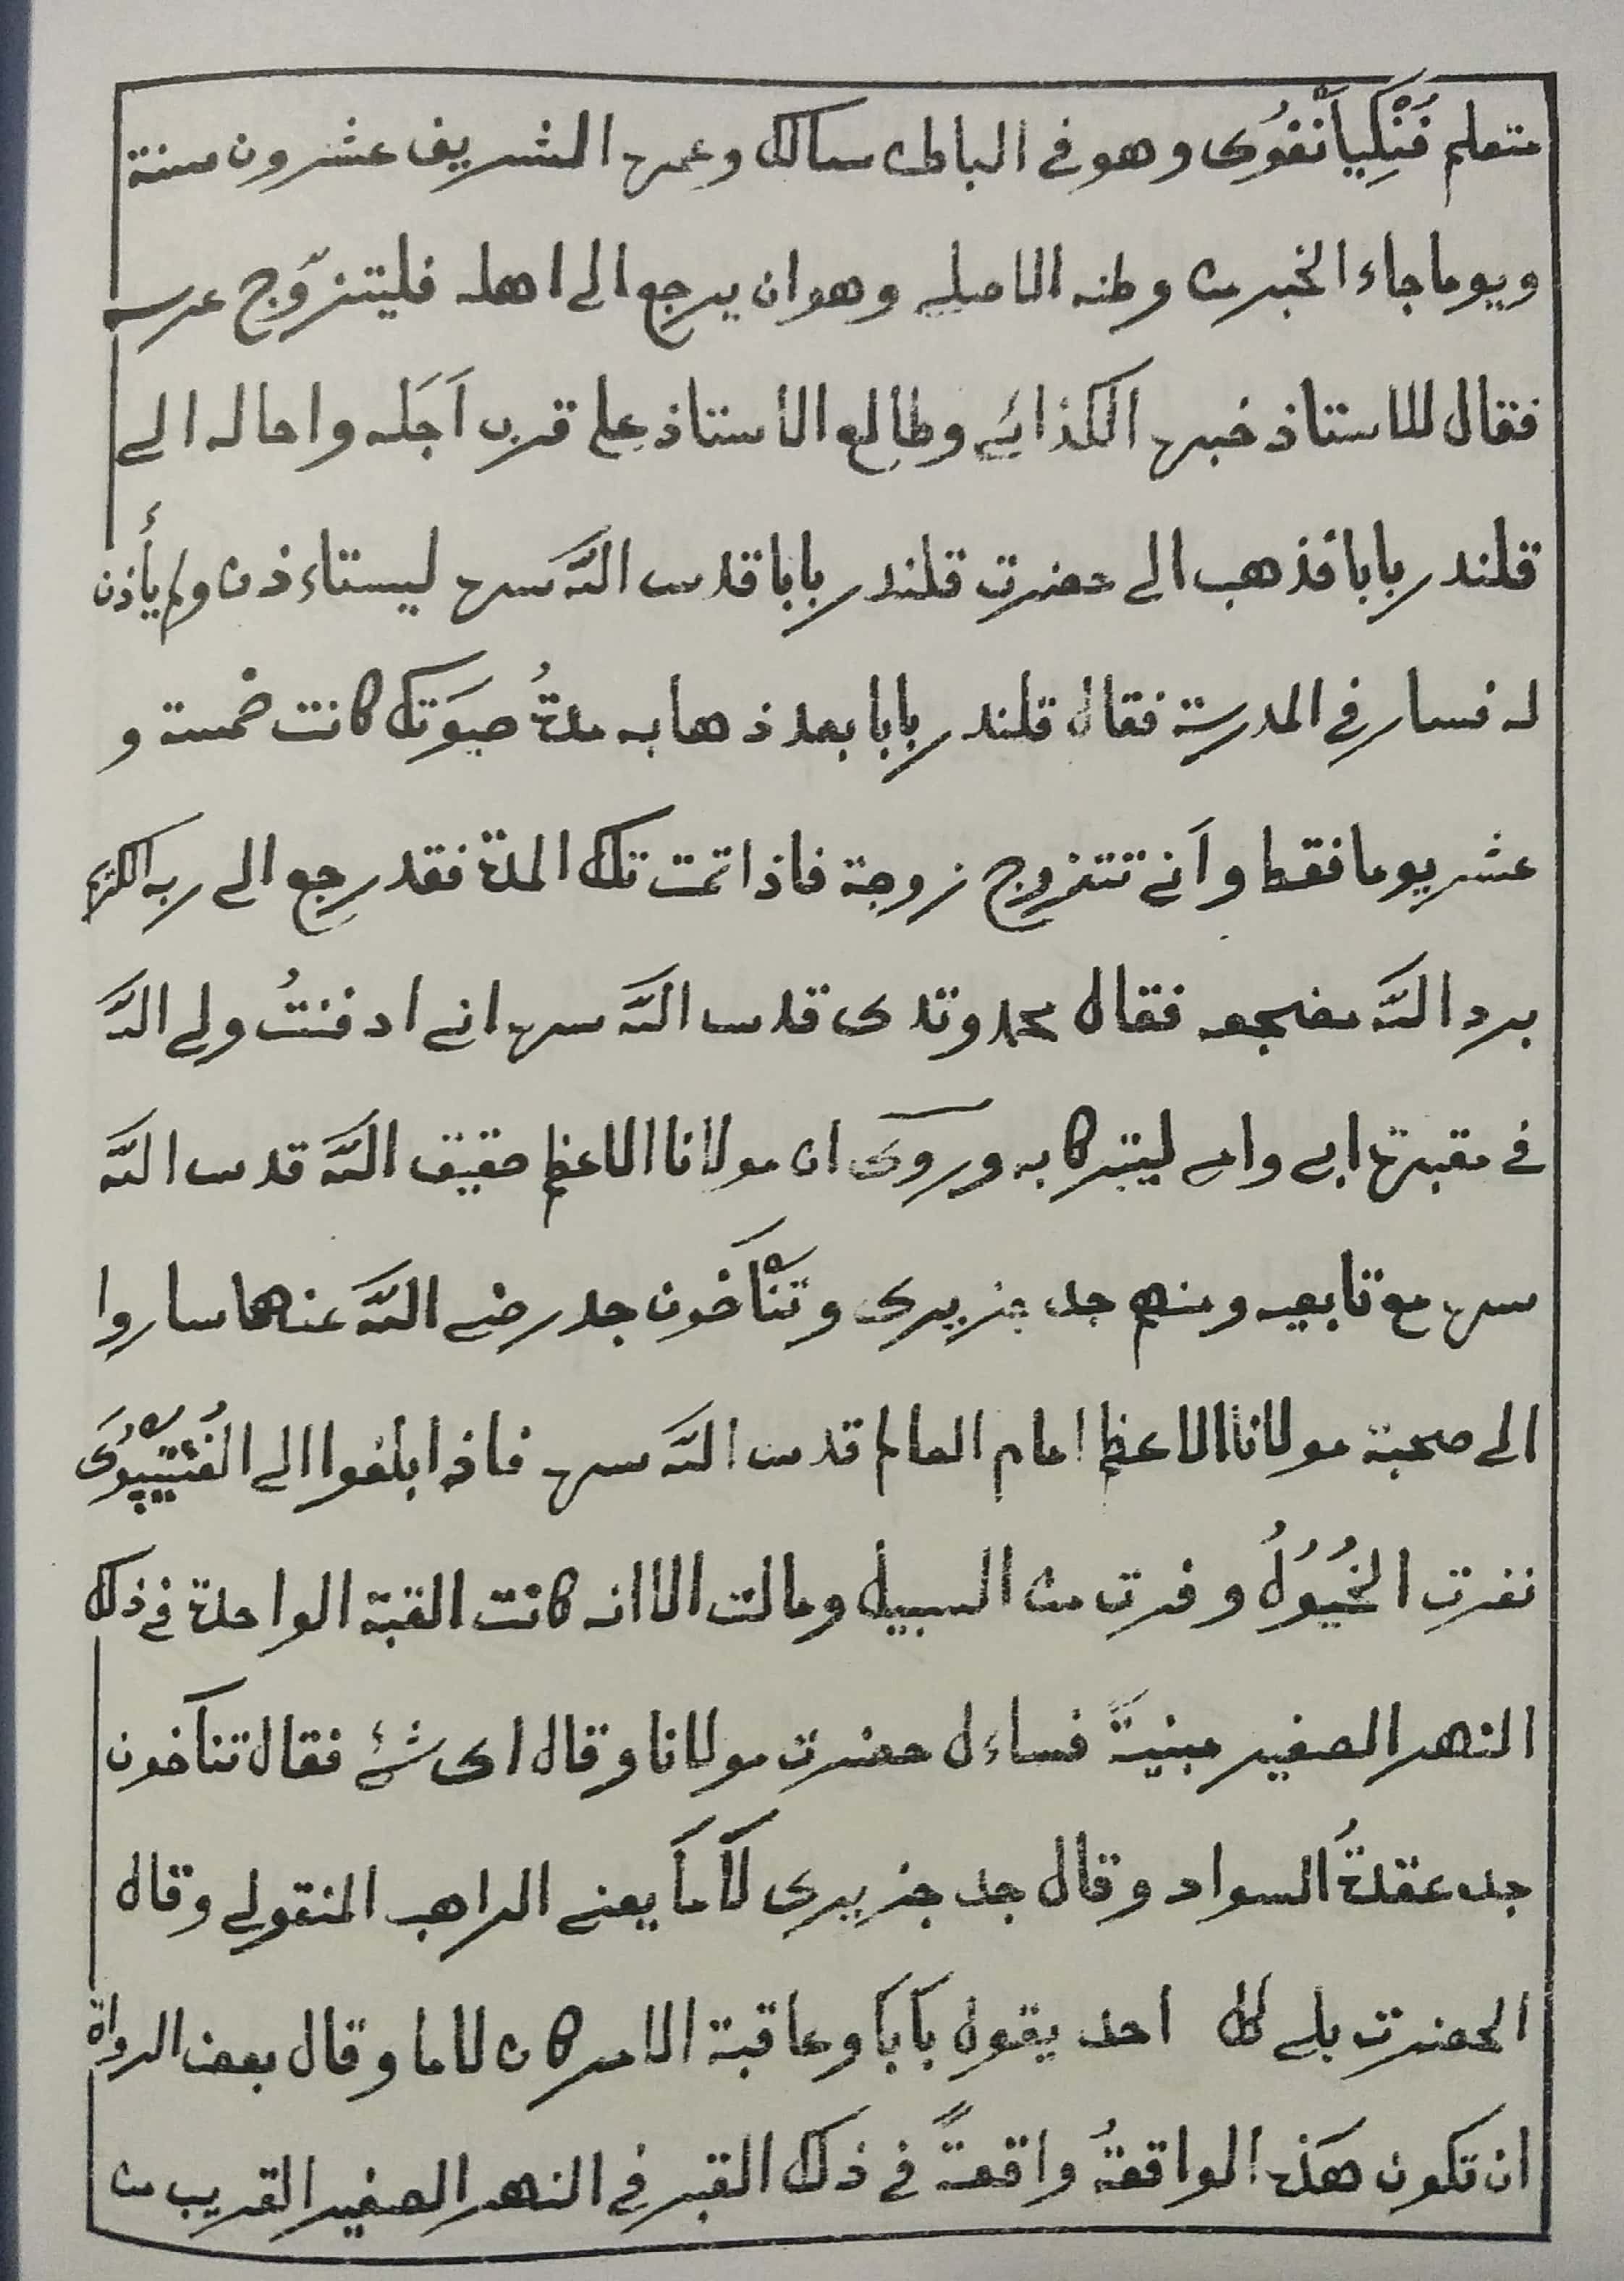 متعلم وهو في الباطن سالك وعمره الشريف عشرون سنة
ويوما جاء الخبر من وطنه الاصلي وهو ان يرجع الى اهله فليتزوّج عرسه
فقال للاستاذ خبره الكذائي وطالع الاستاذ على قرب اَجَله واحاله الى
قلندر بابا فذهب الى حضرت قلندر بابا قدس اللّه سره ليستاءذن ولم يأذن
له فسار في المدرسة فقال قلندر بابا بعد ذهابه مدةُ حيوَتك كانت خمسة و
عشر يوما فقط واَنى تتزوج زوجة فاذا تمت تلك المدة فقد رجع الى ربه الكريم
برد اللّه مضجعه فقال محمد وتدى قدس اللّه سره انى ادفنتُ ولى اللّه
في مقبرة ابى وامى ليتبركا به وروى ان مولانا الاعظم حقيق اللّه قدس اللّه
سره مع تابعيه ومنهم جد جزيرى وتنْاَخون جد رضى اللّه عنهما ساروا
الى صحبة مولانا الاعظم امام العالم قدس اللّه سره فاذا بلغوا الى
نفرت الخُيُولُ وفرت من السبيل ومالت الا انه كانت القبة الواحدة في ذلك
النهر الصغير مبنيةً فساءل حضرت مولانا وقال اى شئ فقال تناَخون
جد عقدةُ السواد وقال جد جزيرى لاَماَ يعنى الراهب المنقولى وقال
الحضرت بلى كل احد يقول باَباَ وعاقبة الامر كان لاما وقال بعض الرواة
ان تكون هَذه الواقعةُ واقعةً في ذلك القبر في النهر الصغير القريب من